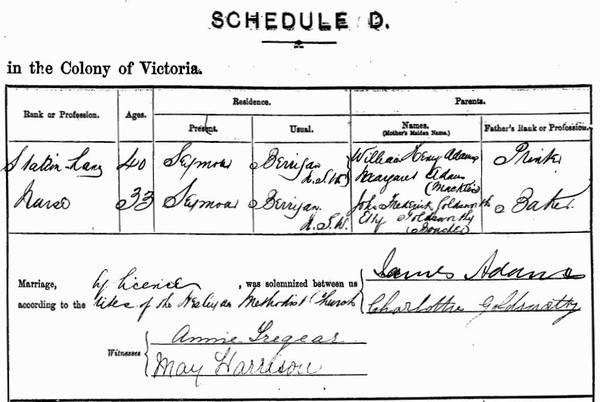 SCHEDULE D.
in the Colony of Victoria.
Rank or Profession. Ages. Residence. Parents.
Present. Usual. Names. (Mother's Maiden Name.) Father's Rank or Profession.
Station 40 Seymour Berrigan William Henry Adams
N.S.W. Margaret Adams
Nurse 33 Seymour Berrigan John Frederick Goldsworthy Baker
N.S.W. Goldsworthy
Marriage, by licence, was solemnized between us James Adams
according to the rites of the Wesleyan Methodist Church Charlotte Goldsworthy
Witnesses Annie Tregear
May Harrison